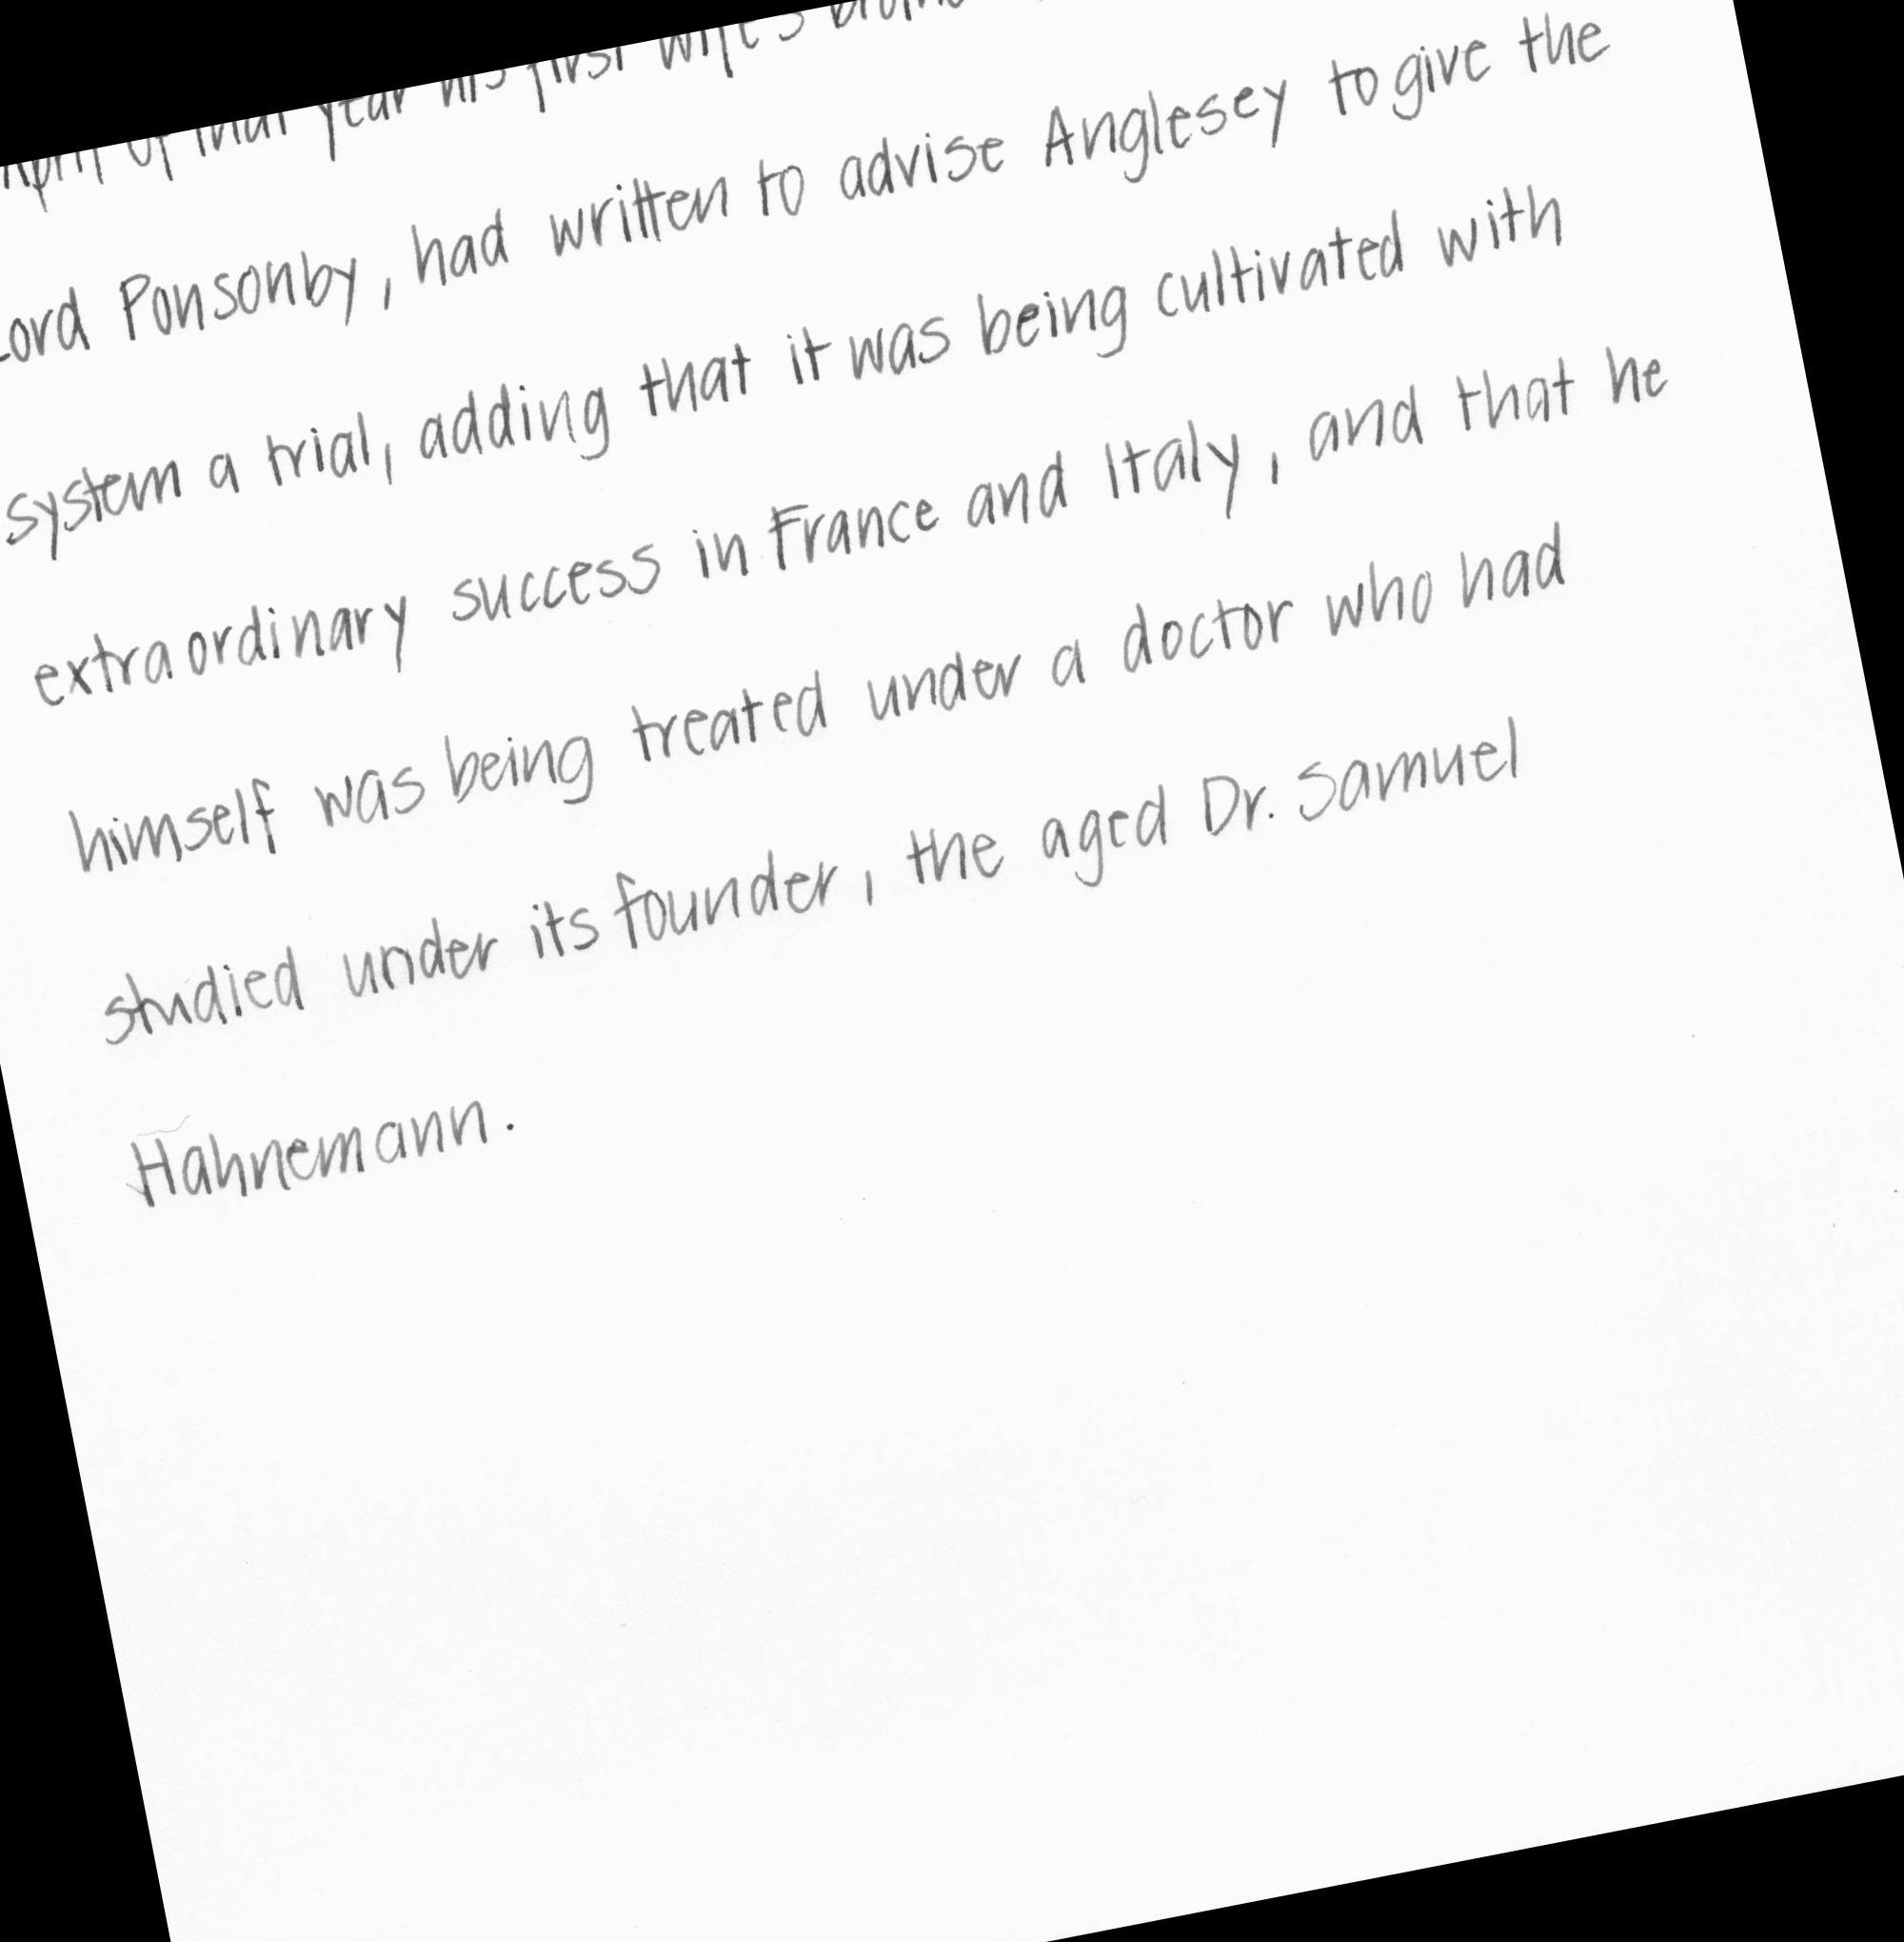 April of that year his first wife's
Lord Ponsonby, had written to advise Anglesey to give the
system a trial, adding that it was being cultivated with
extraordinary success in France and Italy, and that he
himself was being treated under a doctor who had
studied under its founder, the aged Dr. Samuel
Hahnemann.